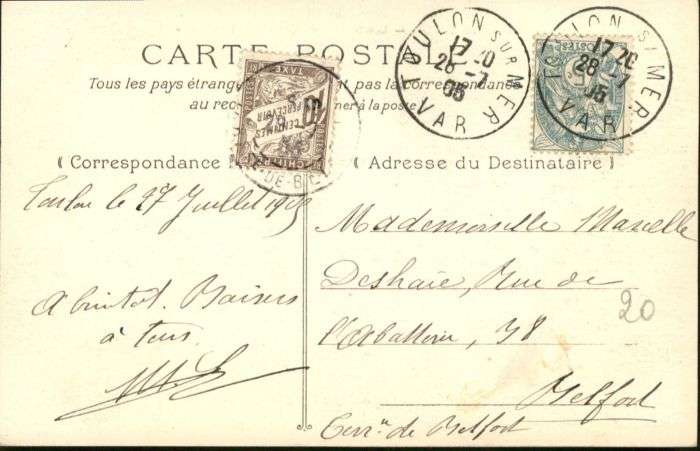 CARTE POSTALE
Tous les pays étrangers pas la correspondance
au reco à la poste
(Correspondance (Adresse du Destinataire)
TOULON SUR MER
17 20
28 -7
05
VAR
TOULON S/ MER
17 20
28 -7
05
VAR
POSTES
TAXE
10
CENTIMES
À PERCEVOIR
Toulon le 27 Juillet 1905
A bientôt. Baisers
à tous
Mademoiselle Marcelle
Deshaie, Rue de
l'Abattoir, 38
Belfort
Terr.re de Belfort
20